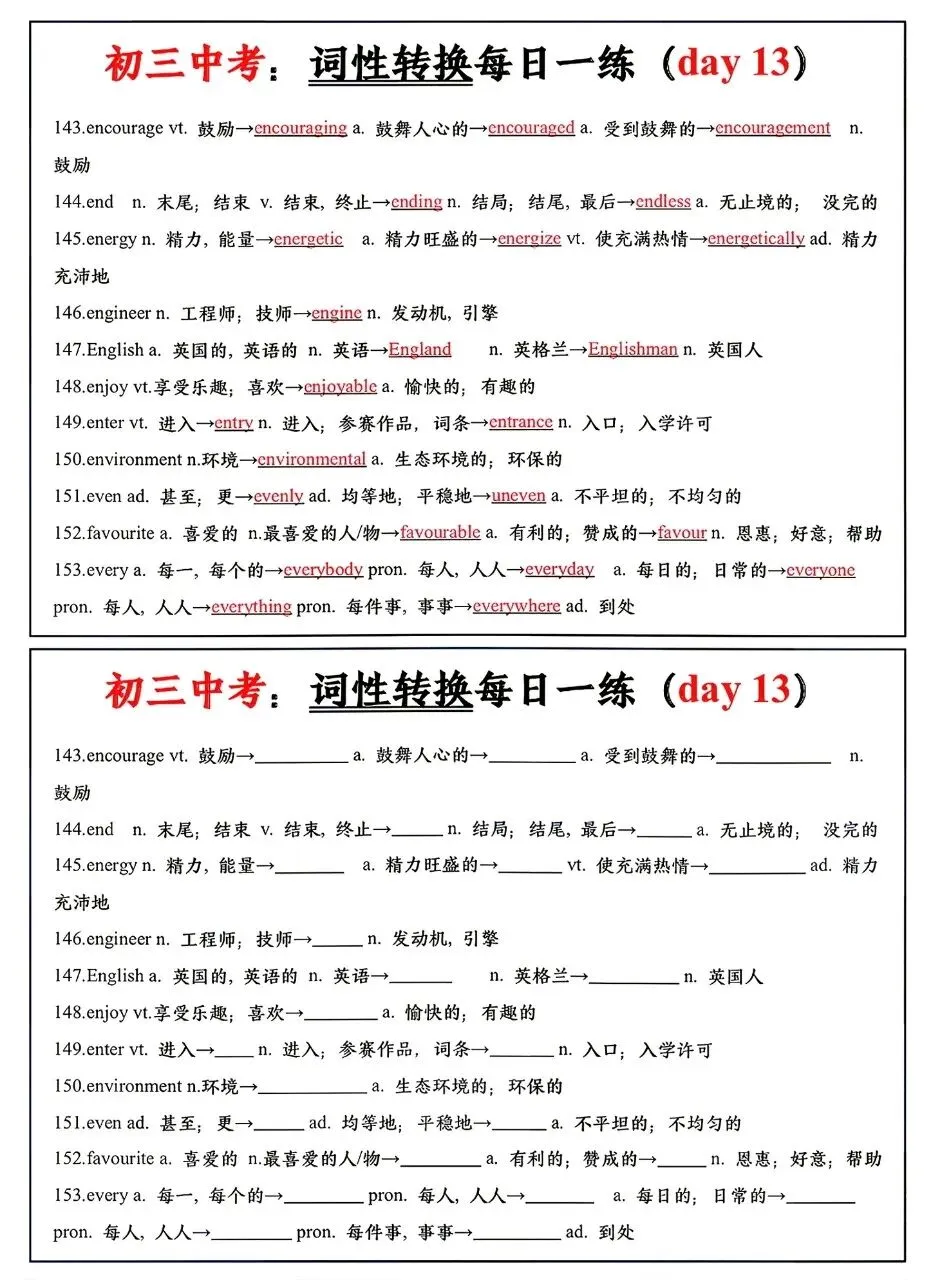 初三中考：词性转换每日一练（day 13）
143.encourage vt. 鼓励→encouraging a. 鼓舞人心的→encouraged a. 受到鼓舞的→encouragement n.
鼓励
144.end n. 末尾；结束 v. 结束, 终止→ending n. 结局；结尾, 最后→endless a. 无止境的； 没完的
145.energy n. 精力, 能量→energetic a. 精力旺盛的→energize vt. 使充满热情→energetically ad. 精力
充沛地
146.engineer n. 工程师；技师→engine n. 发动机, 引擎
147.English a. 英国的, 英语的 n. 英语→England n. 英格兰→Englishman n. 英国人
148.enjoy vt.享受乐趣；喜欢→enjoyable a. 愉快的；有趣的
149.enter vt. 进入→entry n. 进入；参赛作品, 词条→entrance n. 入口；入学许可
150.environment n.环境→environmental a. 生态环境的；环保的
151.even ad. 甚至；更→evenly ad. 均等地；平稳地→uneven a. 不平坦的；不均匀的
152.favourite a. 喜爱的 n.最喜爱的人/物→favourable a. 有利的；赞成的→favour n. 恩惠；好意；帮助
153.every a. 每一, 每个的→everybody pron. 每人, 人人→everyday a. 每日的；日常的→everyone
pron. 每人, 人人→everything pron. 每件事, 事事→everywhere ad. 到处
初三中考：词性转换每日一练（day 13）
143.encourage vt. 鼓励→__________ a. 鼓舞人心的→__________ a. 受到鼓舞的→_____________ n.
鼓励
144.end n. 末尾；结束 v. 结束, 终止→______ n. 结局；结尾, 最后→______ a. 无止境的； 没完的
145.energy n. 精力, 能量→________ a. 精力旺盛的→_______ vt. 使充满热情→___________ ad. 精力
充沛地
146.engineer n. 工程师；技师→______ n. 发动机, 引擎
147.English a. 英国的, 英语的 n. 英语→_______ n. 英格兰→__________ n. 英国人
148.enjoy vt.享受乐趣；喜欢→________ a. 愉快的；有趣的
149.enter vt. 进入→____ n. 进入；参赛作品, 词条→_______ n. 入口；入学许可
150.environment n.环境→____________ a. 生态环境的；环保的
151.even ad. 甚至；更→______ ad. 均等地；平稳地→______ a. 不平坦的；不均匀的
152.favourite a. 喜爱的 n.最喜爱的人/物→_________ a. 有利的；赞成的→_____ n. 恩惠；好意；帮助
153.every a. 每一, 每个的→_________ pron. 每人, 人人→________ a. 每日的；日常的→________
pron. 每人, 人人→_________ pron. 每件事, 事事→__________ ad. 到处